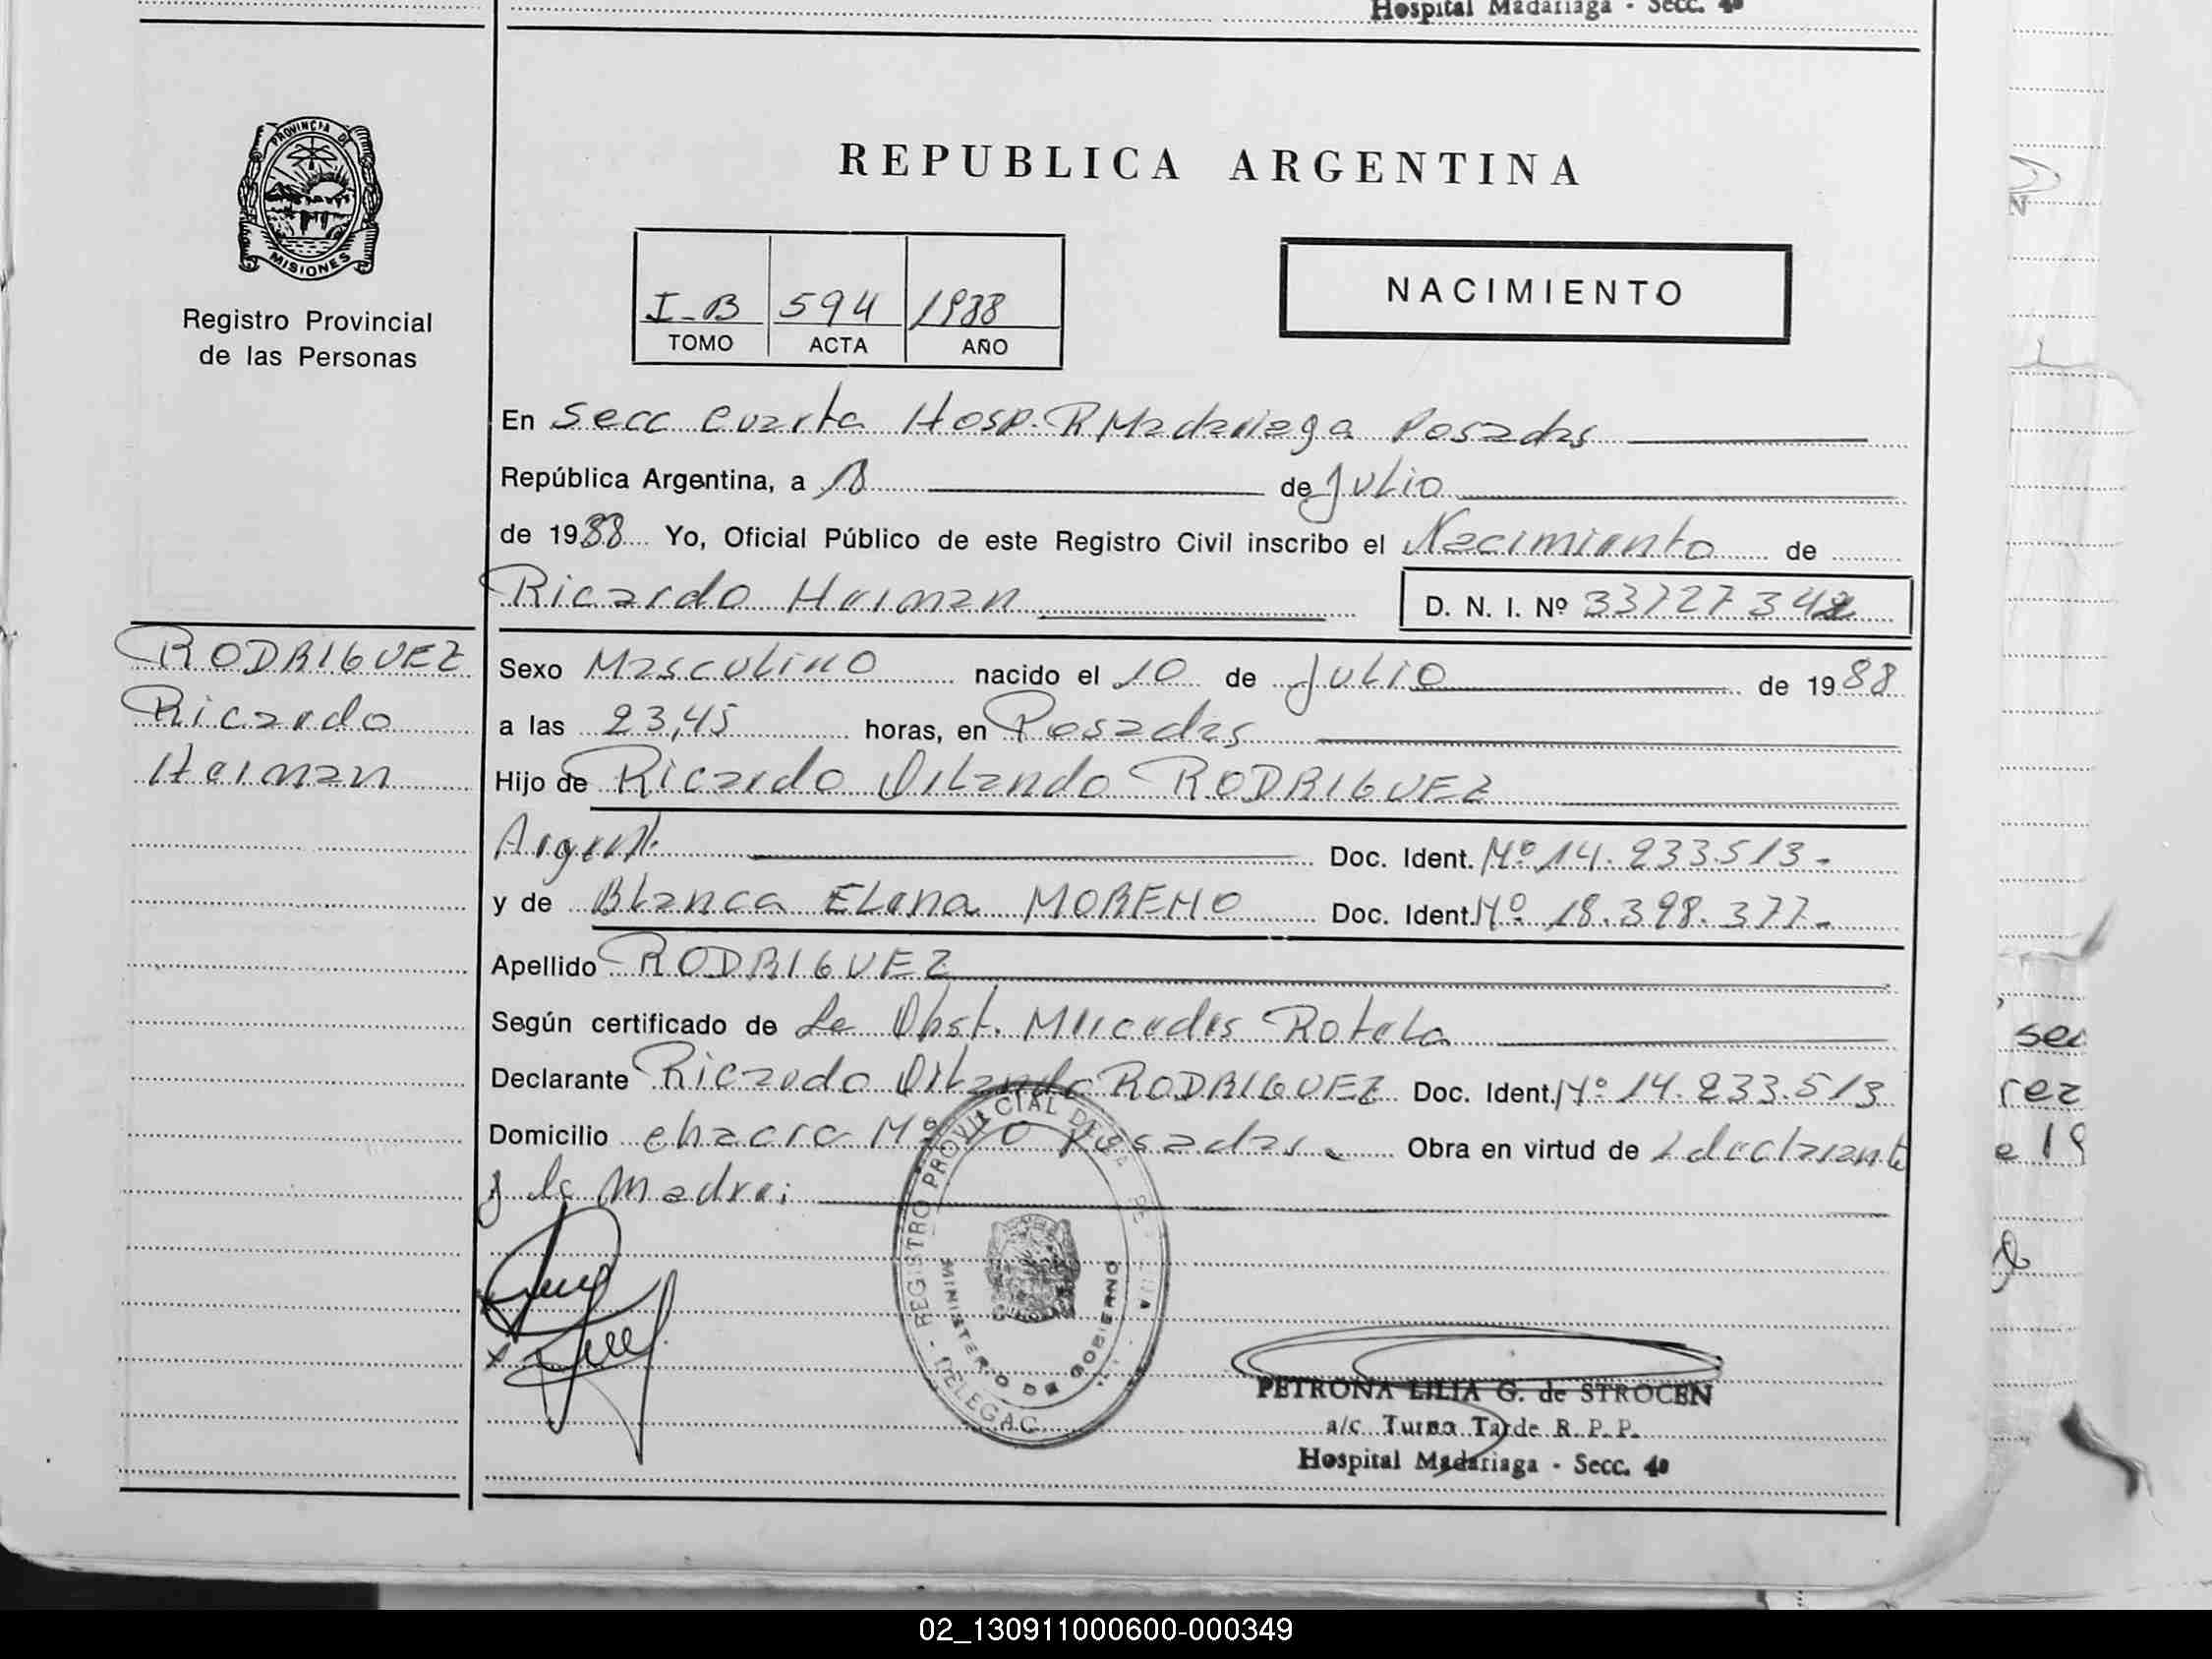 Hospital Madariaga - Secc. 4ª
PROVINCIA DE
MISIONES
Registro Provincial
de las Personas
REPUBLICA ARGENTINA
I-B 594 1988
TOMO ACTA AÑO
NACIMIENTO
En Secc Cuarta Hosp. R Madariaga Posadas
República Argentina, a de Julio
de 1988 Yo, Oficial Público de este Registro Civil inscribo el Nacimiento de
Ricardo Herman D. N. I. Nº 3372734
RODRIGUEZ
Ricardo
Herman
Sexo Masculino nacido el 10 de Julio de 1988
a las 23,45 horas, en Posadas
Hijo de Ricardo Orlando RODRIGUEZ
Argent. Doc. Ident. Nº 14.233.513-
y de Blanca Elena MORENO Doc. Ident. Nº 18.398.377-
Apellido RODRIGUEZ
Según certificado de La Obst. Mercedes Rotela
Declarante Ricardo Orlando RODRIGUEZ Doc. Ident. Nº 14.233.513
Domicilio chacra Nº Posadas. Obra en virtud de declarante
y la Madre;
REGISTRO PROVINCIAL DE
MINISTERIO DE GOBIERNO
DELEGAC
PETRONA LILIA G. de STROCEN
a/c Turno Tarde R. P. P.
Hospital Madariaga - Secc. 4ª
sec
rez
e 19
02_130911000600-000349